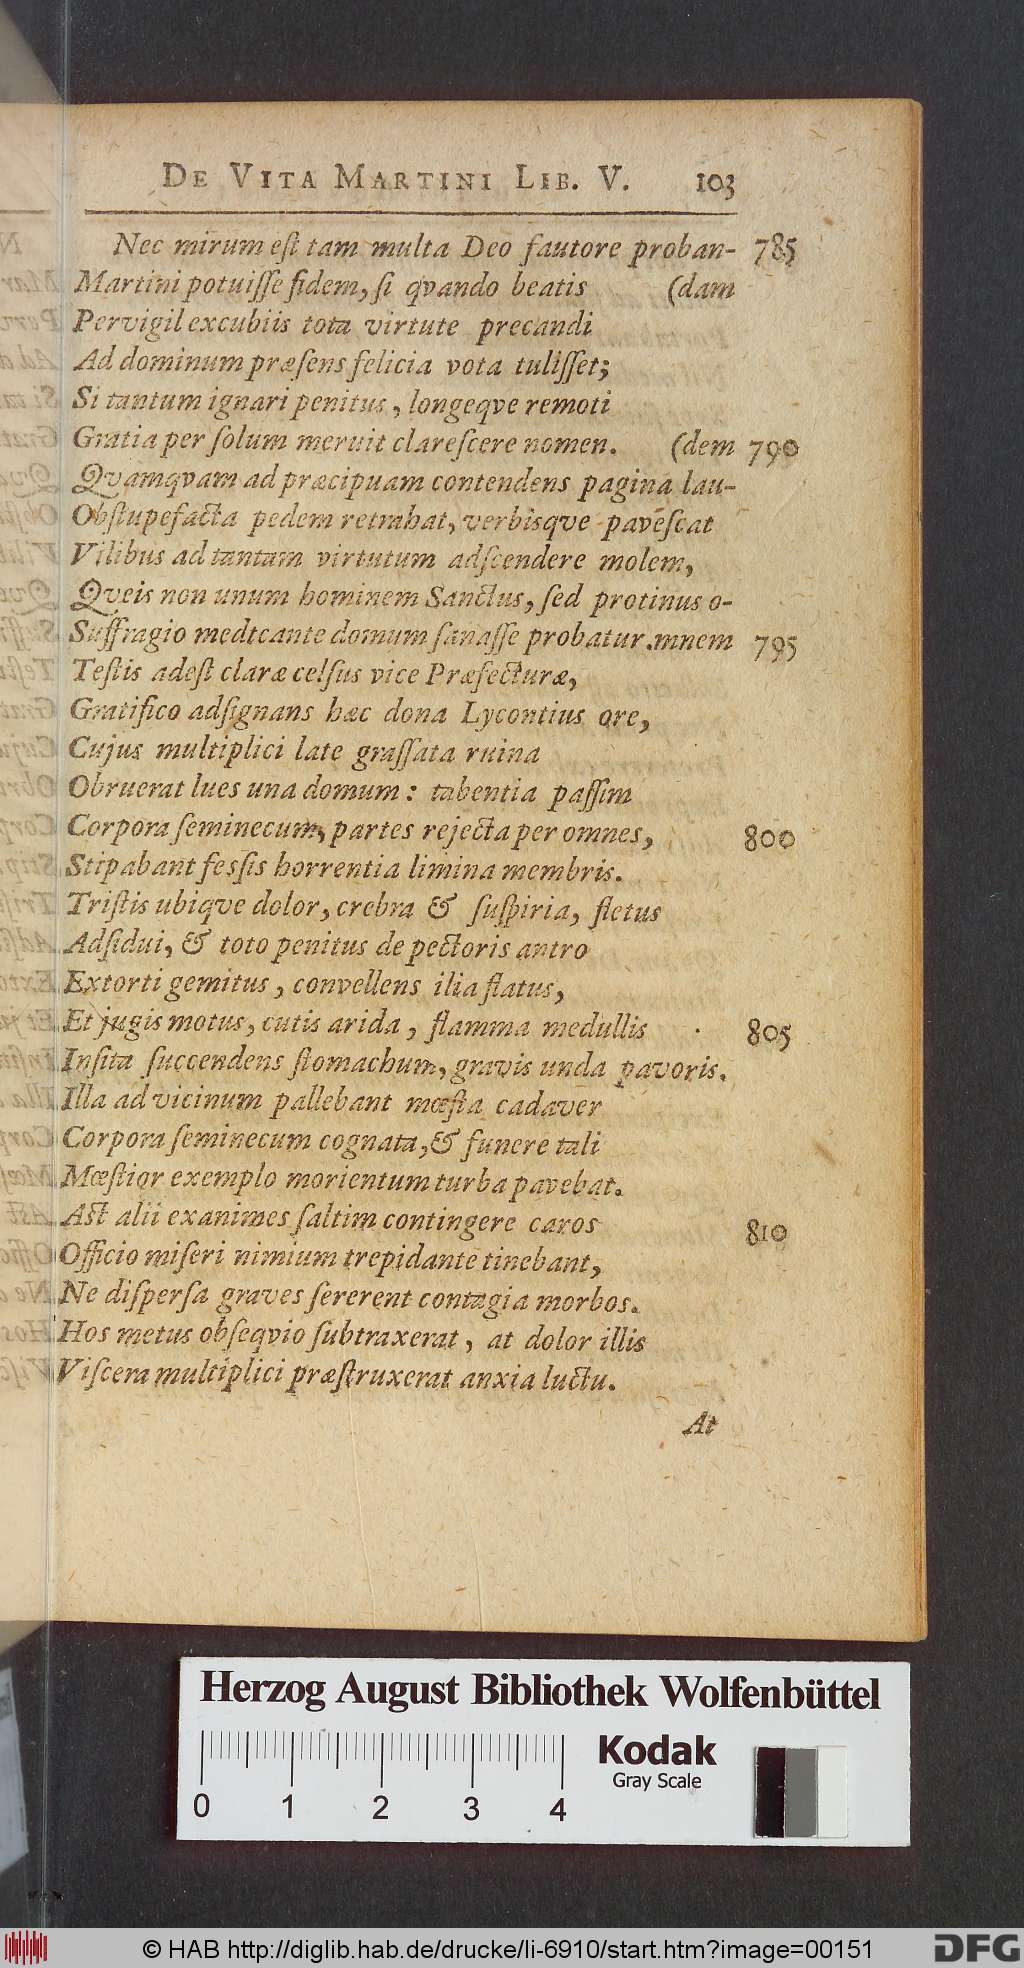 DE VITA MARTINI LIB. V. 103
Nec mirum eſt tam multa Deo fautore proban- 785
Martini potuiſſe fidem, ſi qvando beatis (dam
Pervigil excubiis tota virtute precandi
Ad dominum præſens felicia vota tuliſſet;
Si tantum ignari penitus, longeqve remoti
Gratia per ſolum meruit clareſcere nomen. (dem 790
Qvamqvam ad præcipuam contendens pagina lau-
Obſtupefacta pedem retrahat, verbisqve paveſcat
Vilibus ad tantam virtutum adſcendere molem,
Qveis non unum hominem Sanctus, ſed protinus o-
Suffragio medicante domum ſanaſſe probatur. mnem 795
Teſtis adeſt claræ celſus vice Præfecturæ,
Gratifico adſignans hæc dona Lycontius ore,
Cujus multiplici late graſſata ruina
Obruerat lues una domum: tabentia paſſim
Corpora ſeminecum, partes rejecta per omnes, 800
Stipabant feſſis horrentia limina membris.
Triſtis ubiqve dolor, crebra & ſuſpiria, fletus
Adſidui, & toto penitus de pectoris antro
Extorti gemitus, convellens ilia flatus,
Et jugis motus, cutis arida, flamma medullis 805
Inſita ſuccendens ſtomachum, gravis unda pavoris.
Illa ad vicinum pallebant mœſta cadaver
Corpora ſeminecum cognata, & funere tali
Mœſtior exemplo morientum turba pavebat.
Aſt alii exanimes ſaltim contingere caros 810
Officio miſeri nimium trepidante tinebant,
Ne diſperſa graves ſererent contagia morbos.
Hos metus obſeqvio ſubtraxerat, at dolor illis
Viſcera multiplici præſtruxerat anxia luctu.
At
Herzog August Bibliothek Wolfenbüttel
Kodak
Gray Scale
0 1 2 3 4
© HAB http://diglib.hab.de/drucke/li-6910/start.htm?image=00151
DFG